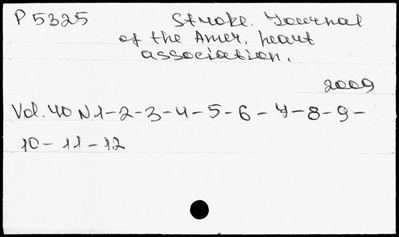 P 5325 Stroke. Journal
of the Amer. heart
association.
2009
Vol. 40 N 1-2-3-4-5-6-7-8-9-
10-11-12